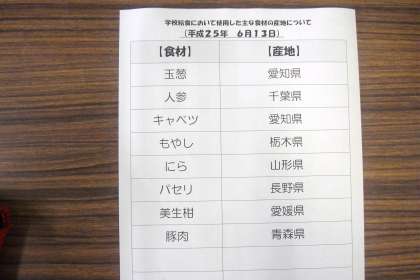 学校給食において使用した主な食材の産地について
（平成２５年　６月１３日）
【食材】 【産地】
玉葱 愛知県
人参 千葉県
キャベツ 愛知県
もやし 栃木県
にら 山形県
パセリ 長野県
美生柑 愛媛県
豚肉 青森県